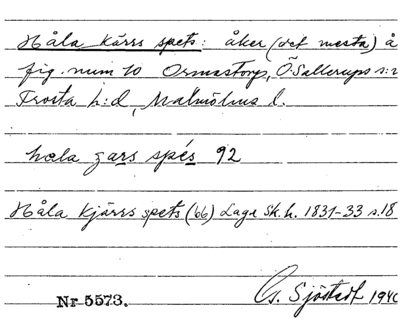 Håla kärrs spets: åker (det mesta) å
fig. num 10 Ormastorp, Ö. Sallerups s:n
Frosta h:d, Malmöhus l.
hæla zars spés 92
Håla Kjärrs spets (bb) Laga Sk. h. 1831-33 s. 18
Nr 5573. G. Sjöstedt 1940